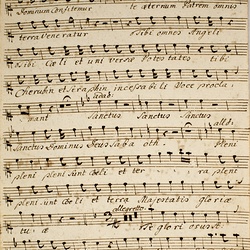 Dominum confitemur te æternum Patrem omnis
terra veneratur tibi omnes Angeli
tibi Cœli et universæ Potestates tibi
Cherubin et Seraphin incessabili Voce procla
mant Sanctus Sanctus Sanctus
Sanctus Dominus Deus Sabaoth. pleni
pleni sunt Cœli et terra pleni
pleni sunt Cœli et terra Majestatis gloriæ
allegretto.
tuæ Te gloriosus